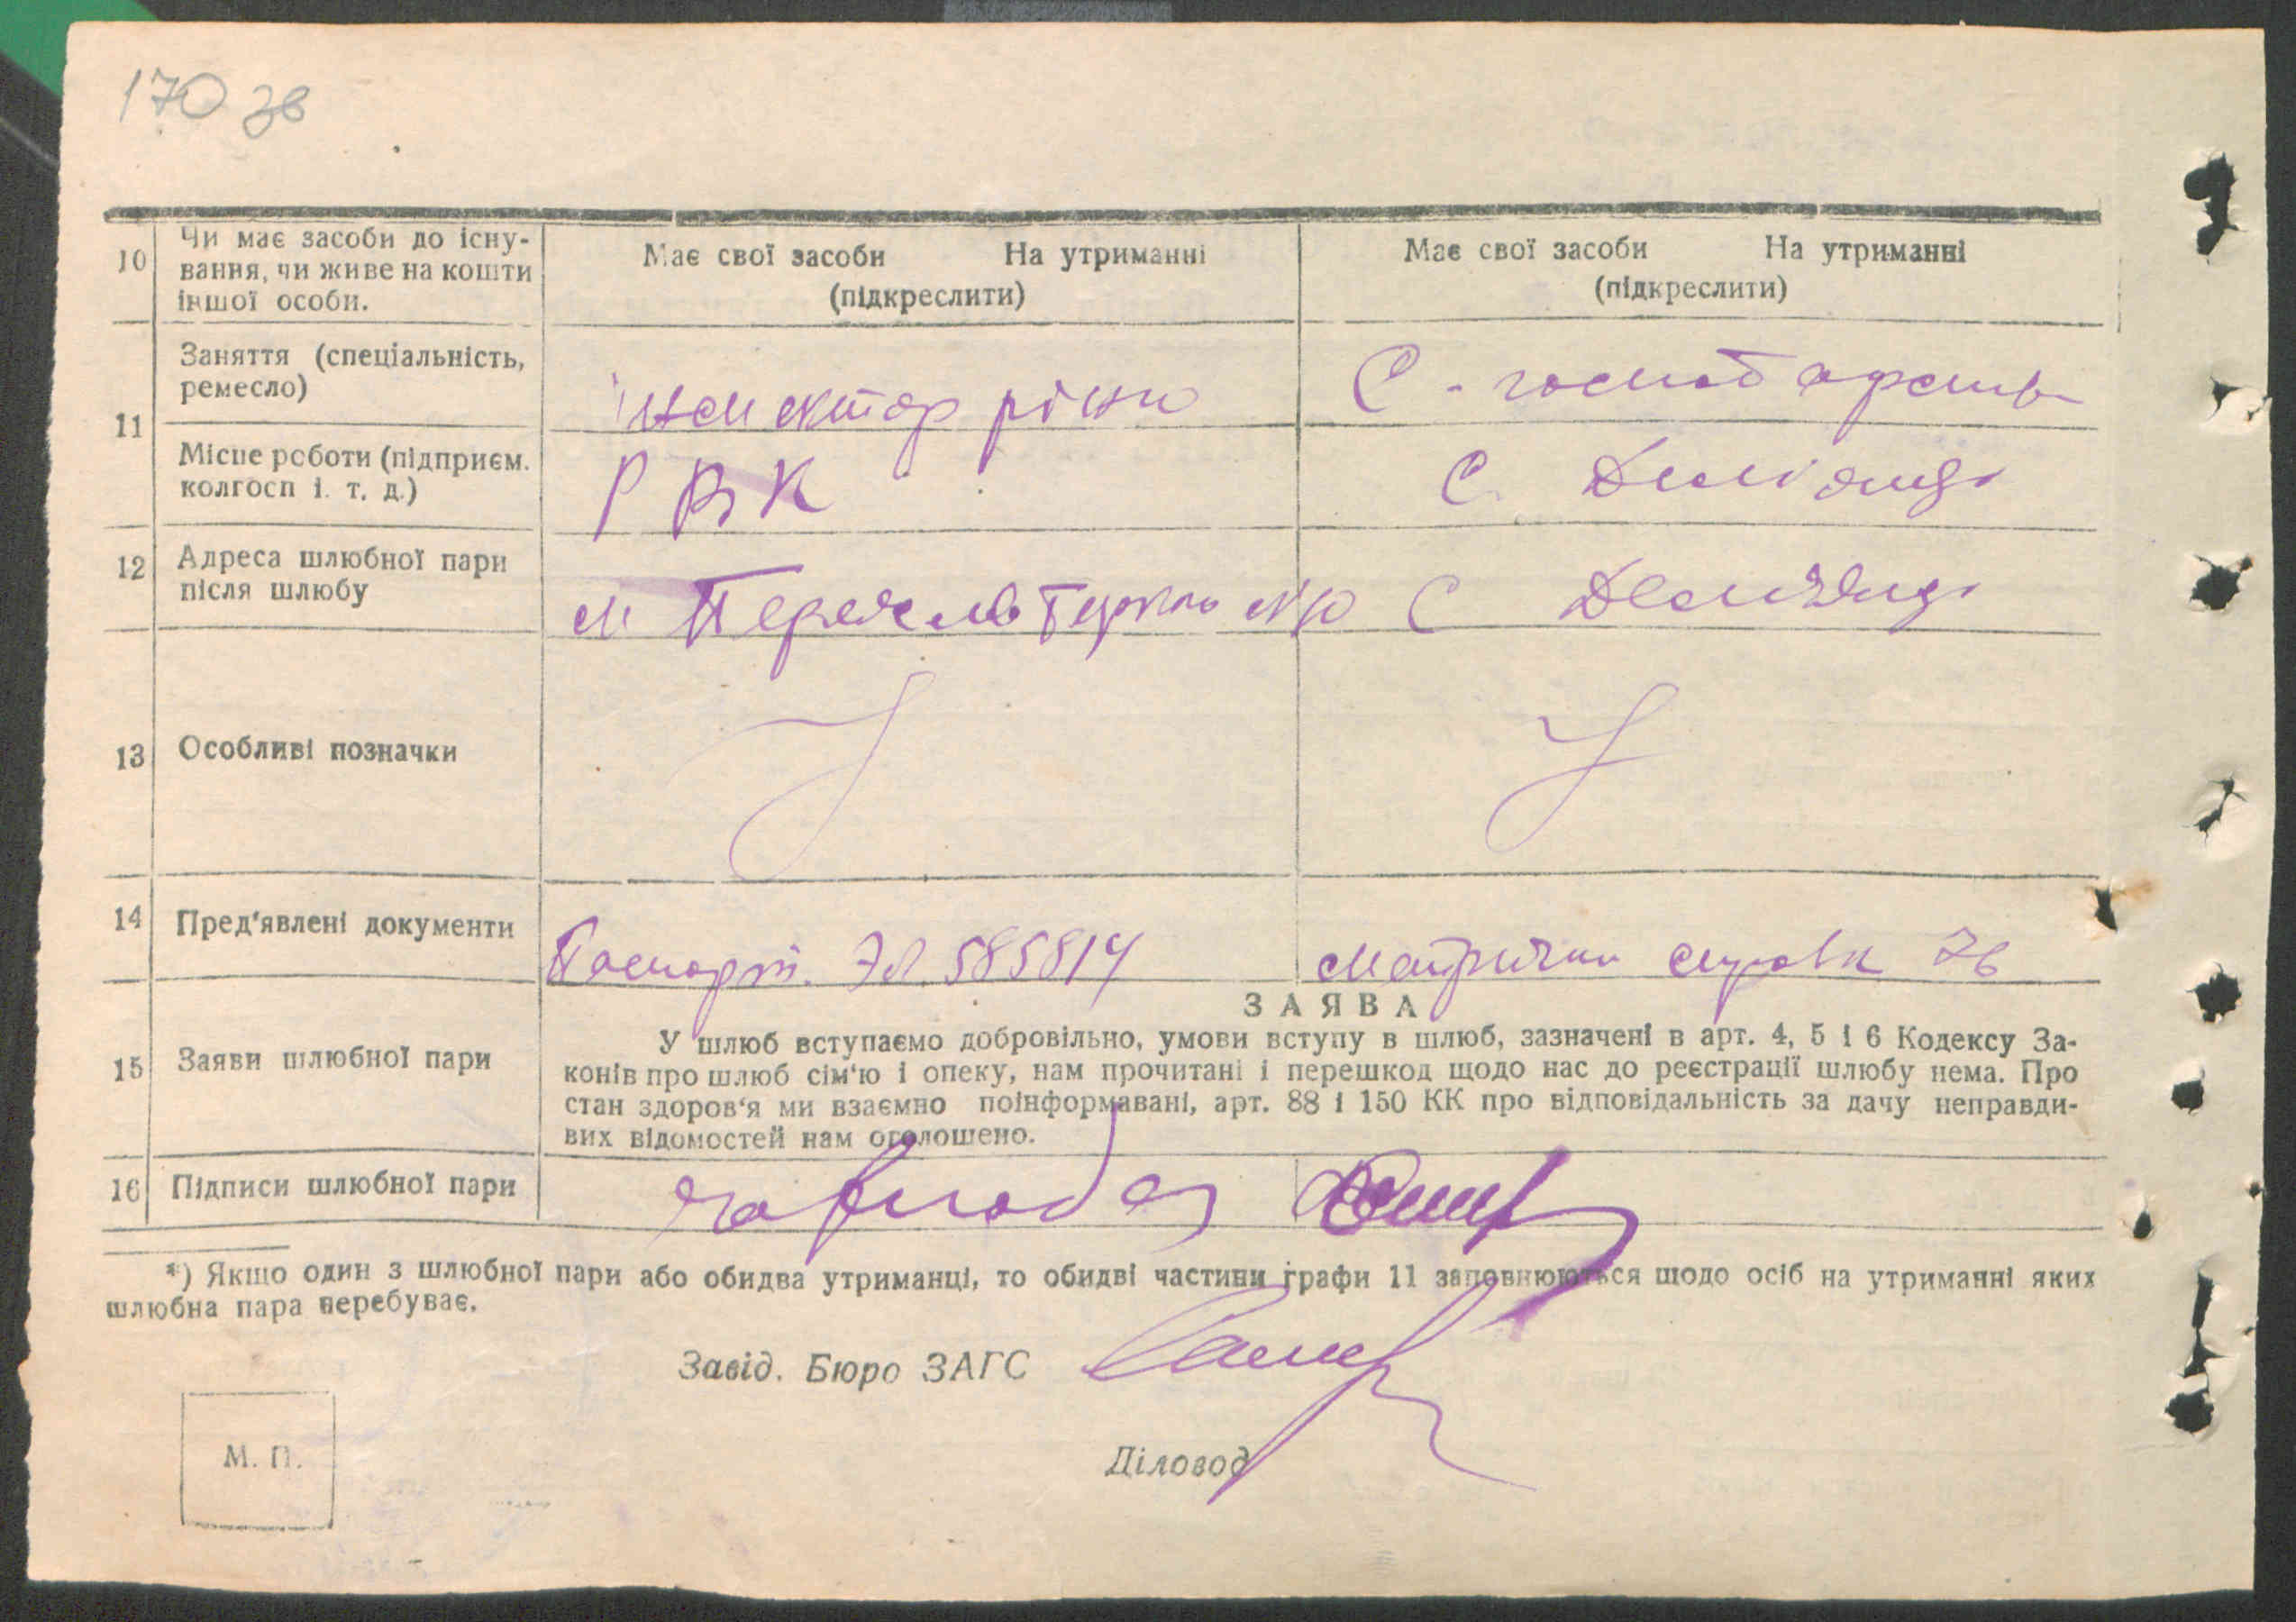 170 зв
10 Чи має засоби до існу-
вання, чи живе на кошти
іншої особи.
Має свої засоби На утриманні
(підкреслити)
Має свої засоби На утриманні
(підкреслити)
11 Заняття (спеціальність,
ремесло)
інспектор
С-господарств
Місце роботи (підприєм.
колгосп і. т. д.)
Р В К
С.
12 Адреса шлюбної пари
після шлюбу
м
С
13 Особливі позначки
14 Пред'явлені документи
Паспорт. ЭЛ. 585814
справк
15 Заяви шлюбної пари
ЗАЯВА
У шлюб вступаємо добровільно, умови вступу в шлюб, зазначені в арт. 4, 5 і 6 Кодексу За-
конів про шлюб сім'ю і опеку, нам прочитані і перешкод щодо нас до реєстрації шлюбу нема. Про
стан здоров'я ми взаємно поінформавані, арт. 88 і 150 КК про відповідальність за дачу неправди-
вих відомостей нам оголошено.
16 Підписи шлюбної пари
*) Якщо один з шлюбної пари або обидва утриманці, то обидві частини графи 11 заповнюються щодо осіб на утриманні яких
шлюбна пара перебуває.
Завід. Бюро ЗАГС
Діловод
М. П.